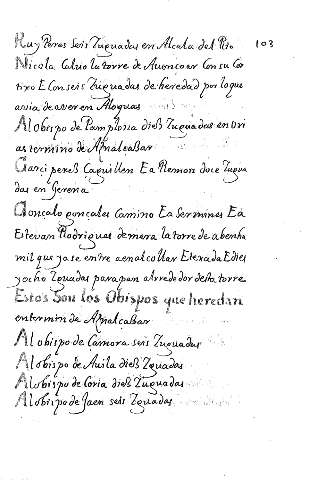 Ruy Peres seis Zuguadas en Alcala del Rio
103
Nicola Caluo la torre de Auencoar Con su Co
rixo E Con seis Zuguadas de heredad por lo que
auia de auer en Aloquas
Al obispo de Pamplona dies Zuguadas en Uri
as termino de Asnalcasar
Garci peres Caguillen Ea Remon doce Zugua
das en Gerena
Gonçalo gonçales Camino Ea Sermines Ea
Estevan Rodrigues de mera la torre de abenha
mil que yase entre aenalcollar E texada E dies
y ocho Zguadas para pan alrrededor desta torre
Estos Son los Obispos que heredan
en termin de Asnalcasar
Al obispo de Camora seis Zuguadas
Al obispo de Auila dies Zguadas
Al obispo de Coria dies Zuguadas
Al obispo de Jaen seis Zguadas